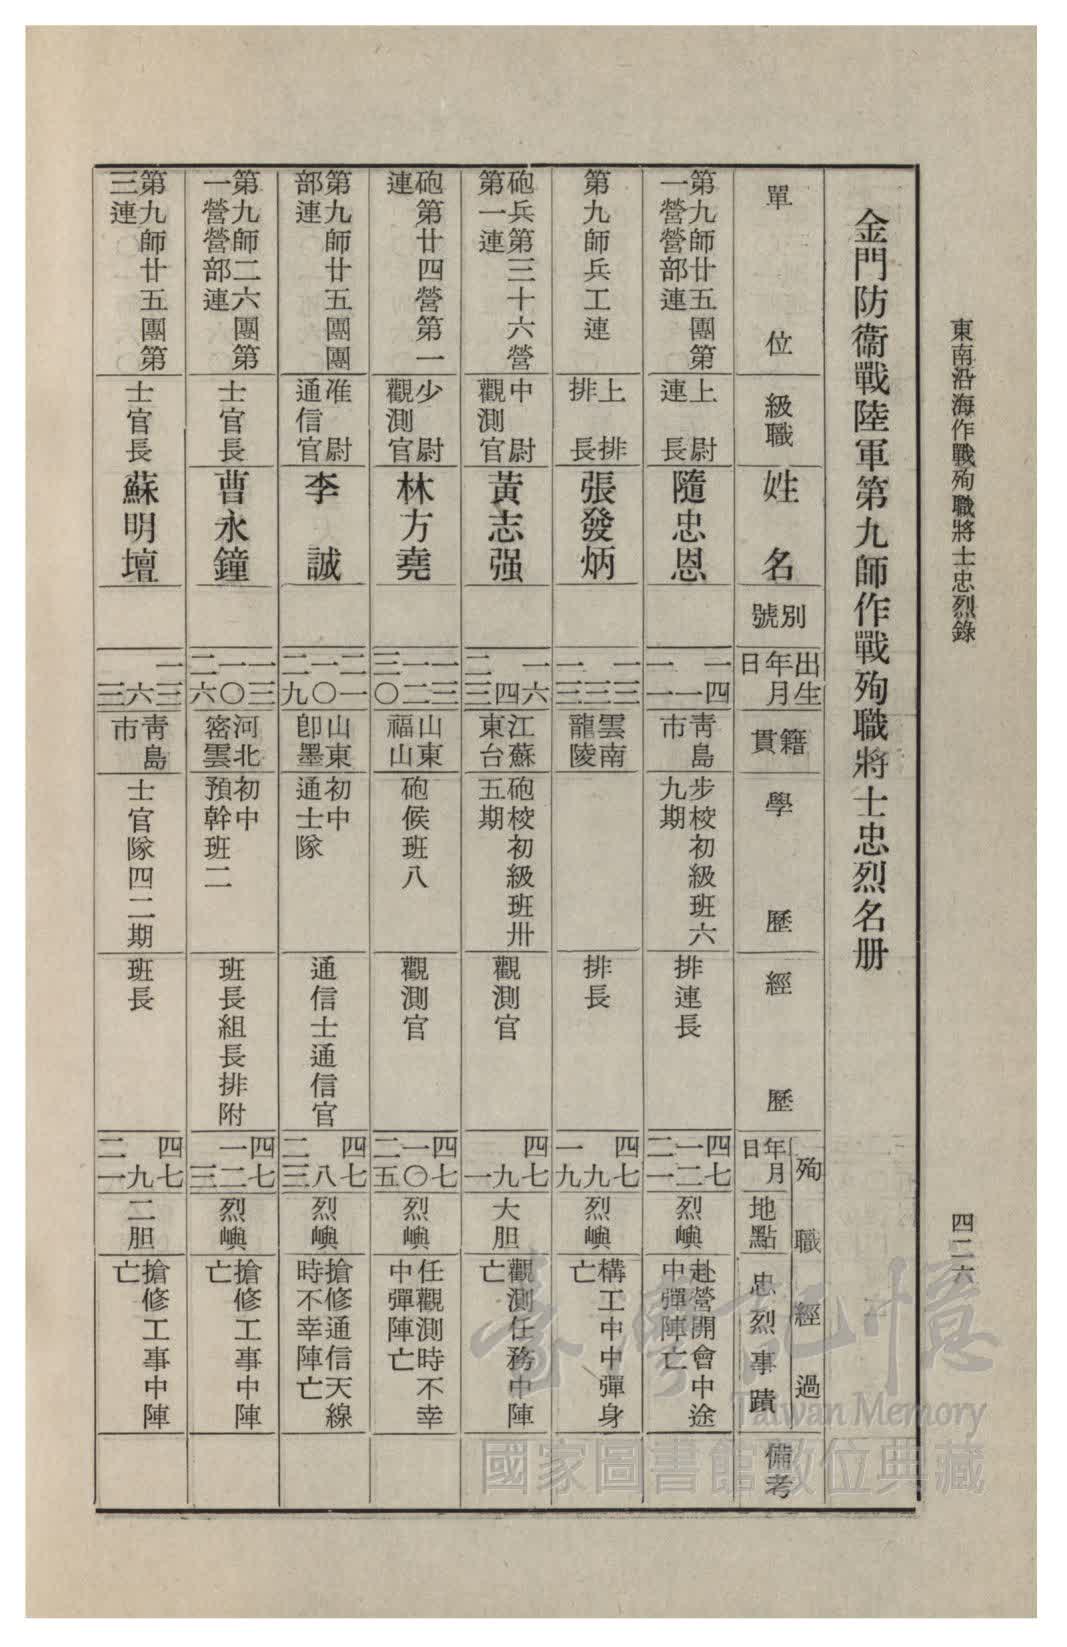 東南沿海作戰殉職將士忠烈錄
四二六
金門防衞戰陸軍第九師作戰殉職將士忠烈名册
單位
級職
姓名
別號
出生
年月日
籍貫
學歷
經歷
殉職經過
年月日
地點
忠烈事蹟
備考
第九師廿五團第
一營營部連
上尉
連長
隨忠恩
一四
一
一一
青島
市
步校初級班六
九期
排連長
四七
一二
二一
烈嶼
赴營開會中途
中彈陣亡
第九師兵工連
上排
排長
張發炳
一三
三
一三
雲南
龍陵
排長
四七
九
一九
烈嶼
構工中中彈身
亡
砲兵第三十六營
第一連
中尉
觀測官
黃志强
一六
四
二三
江蘇
東台
砲校初級班卅
五期
觀測官
四七
九
一
大胆
觀測任務中陣
亡
砲第廿四營第一
連
少尉
觀測官
林方堯
二三
一二
三〇
山東
福山
砲侯班八
觀測官
四七
一〇
二五
烈嶼
任觀測時不幸
中彈陣亡
第九師廿五團團
部連
准尉
通信官
李誠
二一
一〇
二九
山東
卽墨
初中
通士隊
通信士通信官
四七
八
二三
烈嶼
搶修通信天線
時不幸陣亡
第九師二六團第
一營營部連
士官長
曹永鐘
一三
一〇
二六
河北
密雲
初中
預幹班二
班長組長排附
四七
一二
三
烈嶼
搶修工事中陣
亡
第九師廿五團第
三連
士官長
蘇明壇
一三
六
三
青島
市
士官隊四二期
班長
四七
九
二一
二胆
搶修工事中陣
亡
臺灣記憶
Taiwan Memory
國家圖書館數位典藏